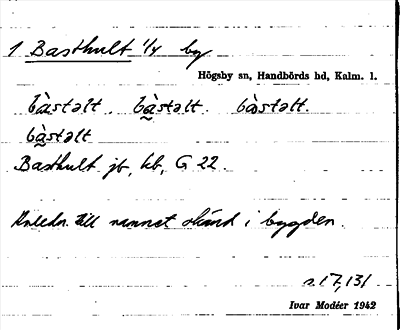 1 Basthult 1/4 by
Högsby sn, Handbörds hd, Kalm. l.
bàstəlt. bàstəlt. bàstəlt.
bàstəlt
Basthult jb, kb, G 22.
Anledn. till namnet okänd i bygden.
s. 17, 131
Ivar Modéer 1942